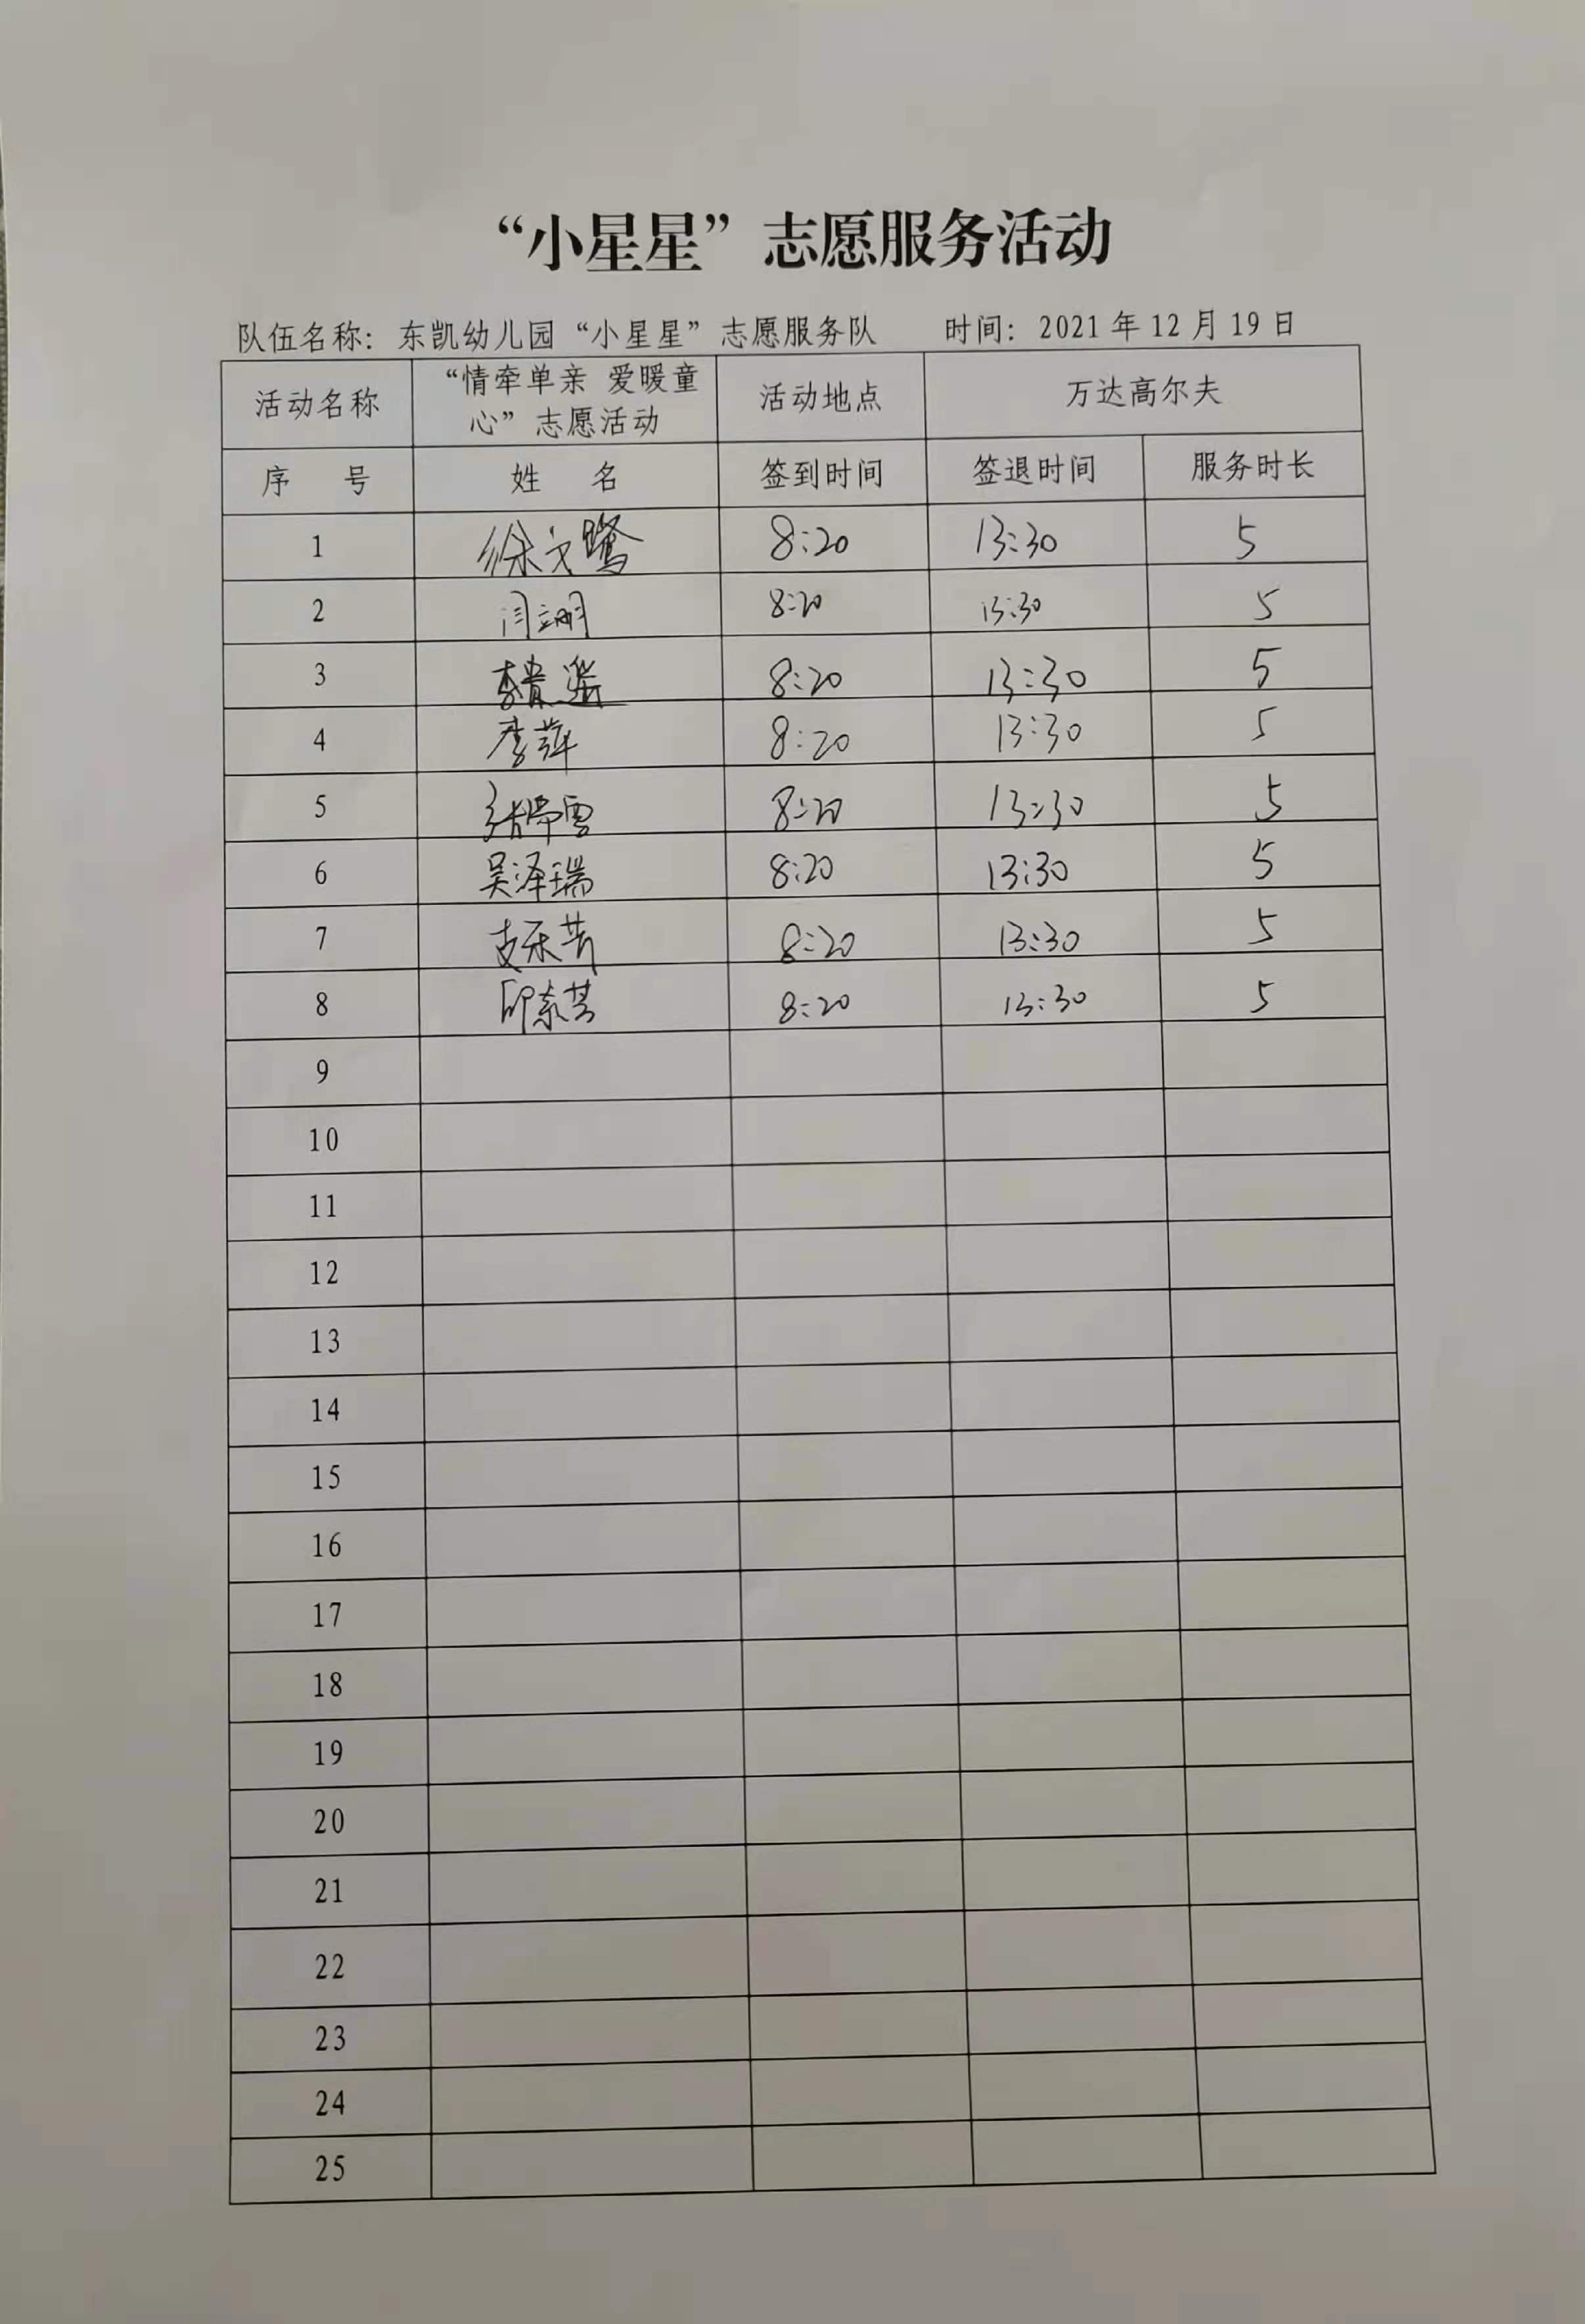 “小星星”志愿服务活动
队伍名称：东凯幼儿园“小星星”志愿服务队 时间：2021年12月19日
活动名称 “情牵单亲 爱暖童心”志愿活动 活动地点 万达高尔夫
序 号 姓 名 签到时间 签退时间 服务时长
1 徐文鹭 8:20 13:30 5
2 闫立明 8:20 13:30 5
3 李贵 8:20 13:30 5
4 李萍 8:20 13:30 5
5 张 雪 8:20 13:30 5
6 吴泽瑞 8:20 13:30 5
7 支乐 8:20 13:30 5
8 邱素芸 8:20 13:30 5
9
10
11
12
13
14
15
16
17
18
19
20
21
22
23
24
25